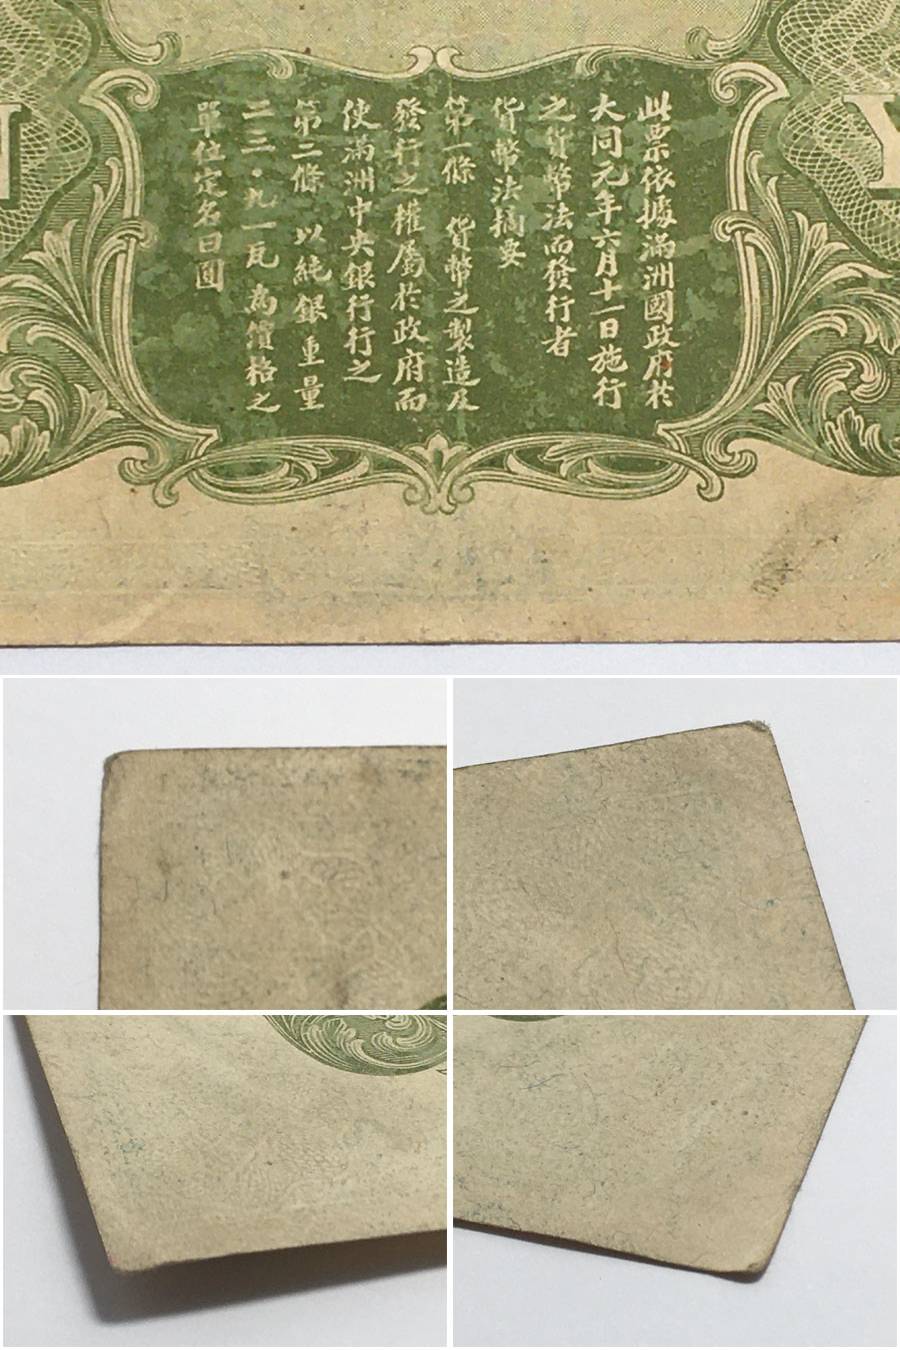 此票依據滿洲國政府於
大同元年六月十一日施行
之貨幣法而發行者
貨幣法摘要
第一條　貨幣之製造及
發行之權屬於政府而
使滿洲中央銀行行之
第二條　以純銀重量
二三·九一瓦為價格之
單位定名曰圓
Y